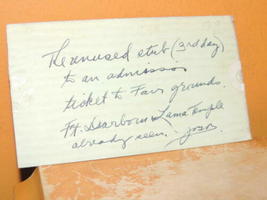 The unused stub (3rd day)
to an admission
ticket to Fair grounds.
Ft. Dearborn & Lama Temple
already seen.